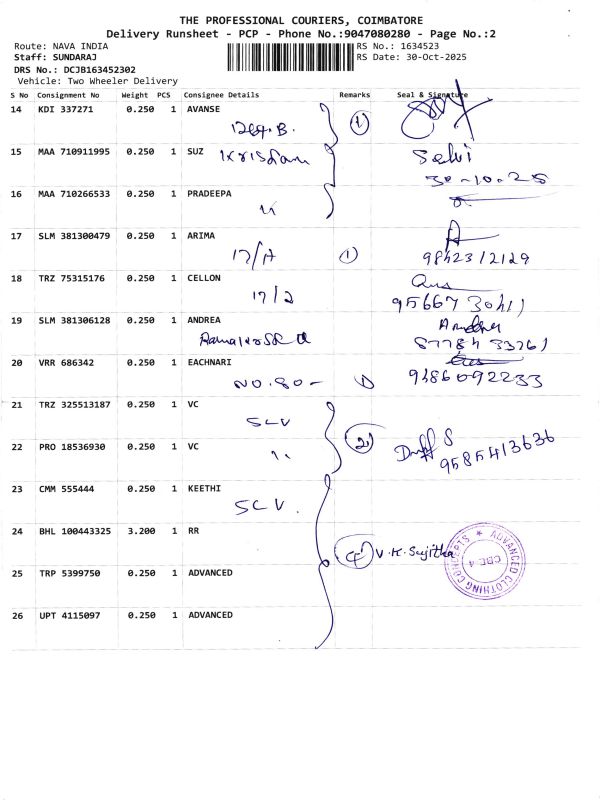 THE PROFESSIONAL COURIERS, COIMBATORE
Delivery Runsheet - PCP - Phone No.:9047080280 - Page No.:2
Route: NAVA INDIA RS No.: 1634523
Staff: SUNDARAJ RS Date: 30-Oct-2025
DRS No.: DCJB163452302
Vehicle: Two Wheeler Delivery
S No Consignment No Weight PCS Consignee Details Remarks Seal & Signature
14 KDI 337271 0.250 1 AVANSE
1
15 MAA 710911995 0.250 1 SUZ
Selvi
30-10-25
16 MAA 710266533 0.250 1 PRADEEPA
17 SLM 381300479 0.250 1 ARIMA
17/A 1 98423 12129
18 TRZ 75315176 0.250 1 CELLON
17/2
19 SLM 381306128 0.250 1 ANDREA
20 VRR 686342 0.250 1 EACHNARI
NO. 80- 1 9486092233
21 TRZ 325513187 0.250 1 VC
SLV
22 PRO 18536930 0.250 1 VC
2 9585413636
23 CMM 555444 0.250 1 KEETHI
SLV.
24 BHL 100443325 3.200 1 RR
V.K. Sujitha
ADVANCED CLOTHING CONCEPTS
CBE-4
25 TRP 5399750 0.250 1 ADVANCED
26 UPT 4115097 0.250 1 ADVANCED